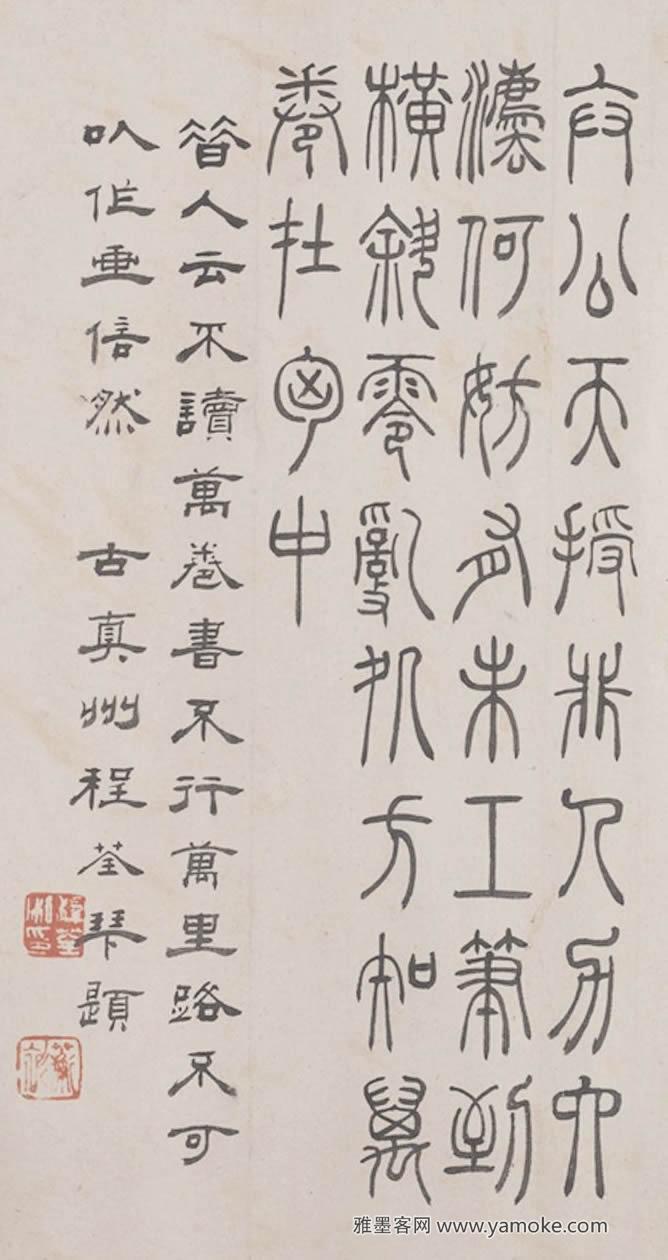 公天授非人力六
灋何妨有未工筆到
橫斜零亂処方知萬
卷在匈中
昔人云不讀萬卷書不行萬里路不可
以作畫信然 古真州程荃題
雅墨客网 www.yamoke.com